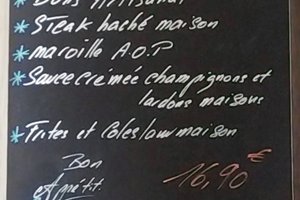 * Buns Artisanal
* Steak haché maison
* maroille A.O.P
* Sauce crémée champignons et
lardons maisons
* Frites et Coleslaw maison
Bon
Appétit.
16,90 €